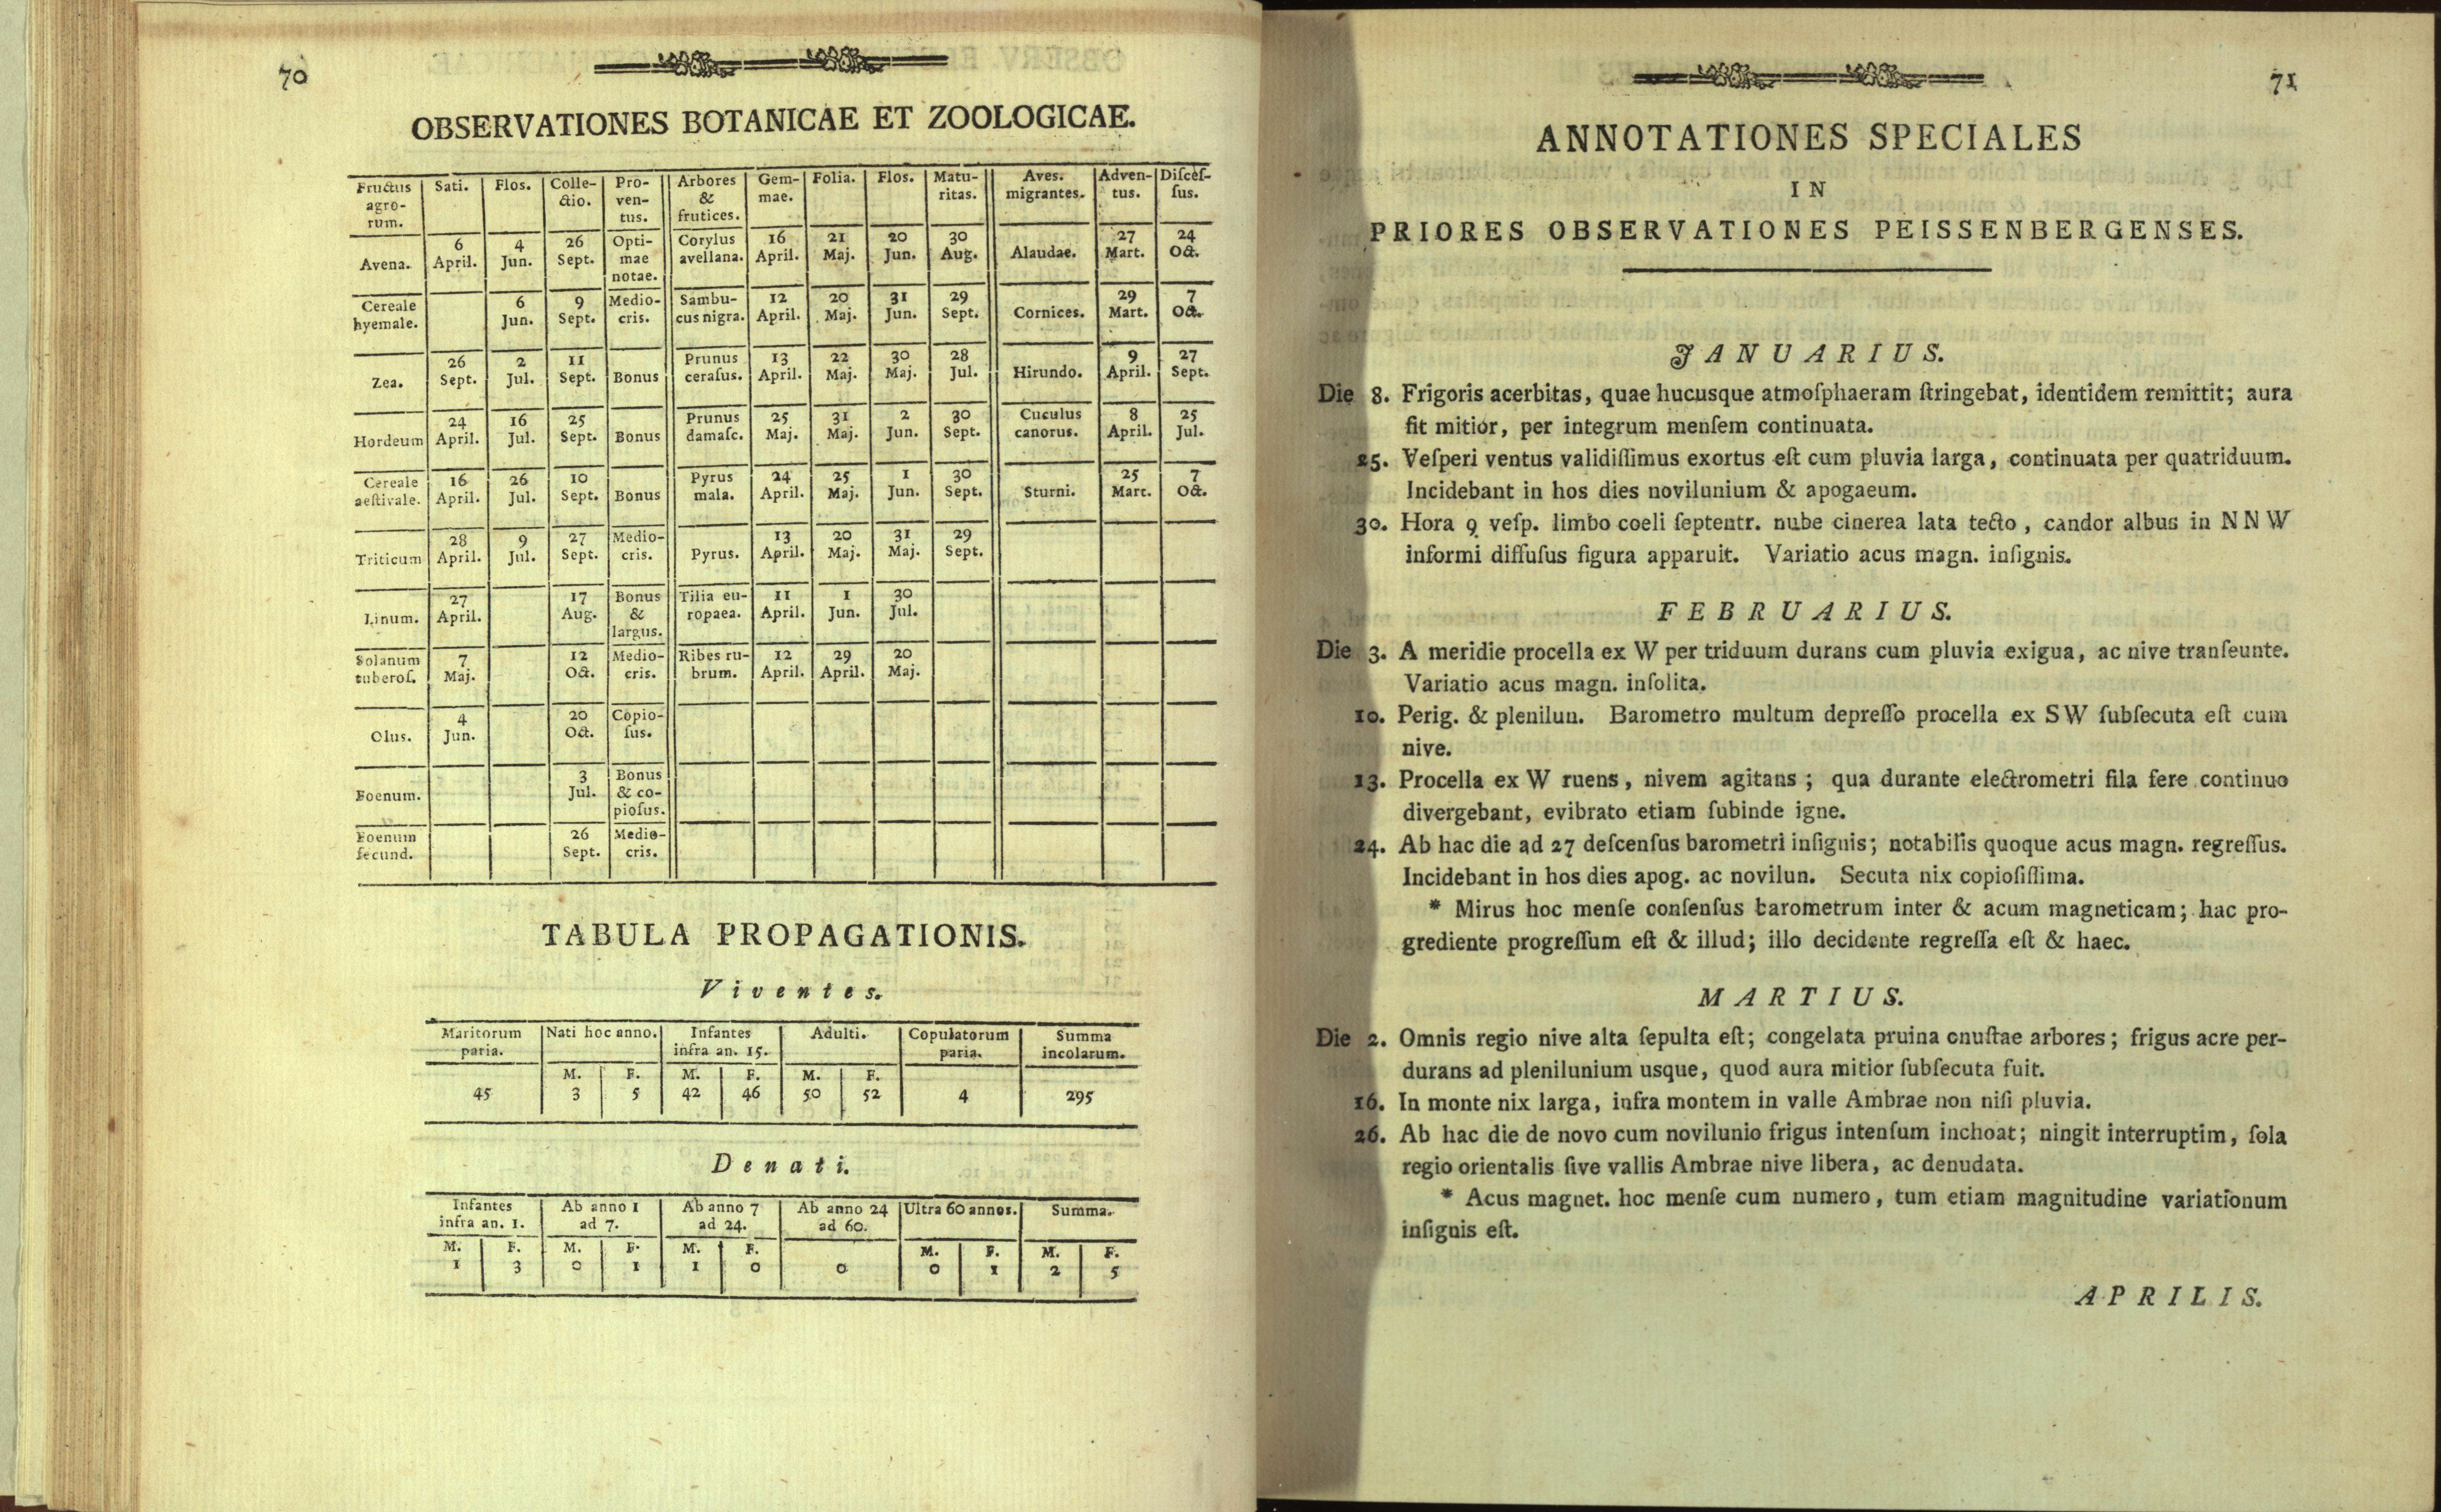 70
OBSERVATIONES BOTANICAE ET ZOOLOGICAE.
Fructus agro- rum. Sati. Flos. Colle- ctio. Pro- ven- tus. Arbores & frutices. Gem- mae. Folia. Flos. Matu- ritas. Aves. migrantes. Adven- tus. Discef- fus.
Avena. 6 April. 4 Jun. 26 Sept. Opti- mae notae. Corylus avellana. 16 April. 21 Maj. 20 Jun. 30 Aug. Alaudae. 27 Mart. 24 Oct.
Cereale hyemale. 6 Jun. 9 Sept. Medio- cris. Sambu- cus nigra. 12 April. 20 Maj. 31 Jun. 29 Sept. Cornices. 29 Mart. 7 Oct.
Zea. 26 Sept. 2 Jul. 11 Sept. Bonus Prunus ceraſus. 13 April. 22 Maj. 30 Maj. 28 Jul. Hirundo. 9 April. 27 Sept.
Hordeum 24 April. 16 Jul. 25 Sept. Bonus Prunus damaſc. 25 Maj. 31 Maj. 2 Jun. 30 Sept. Cuculus canorus. 8 April. 25 Jul.
Cereale aeſtivale. 16 April. 26 Jul. 10 Sept. Bonus Pyrus mala. 24 April. 25 Maj. 1 Jun. 30 Sept. Sturni. 25 Mart. 7 Oct.
Triticum 28 April. 9 Jul. 27 Sept. Medio- cris. Pyrus. 13 April. 20 Maj. 31 Maj. 29 Sept.
Linum. 27 April. 17 Aug. Bonus & largus. Tilia eu- ropaea. 11 April. 1 Jun. 30 Jul.
Solanum tuberoſ. 7 Maj. 12 Oct. Medio- cris. Ribes ru- brum. 12 April. 29 April. 20 Maj.
Olus. 4 Jun. 20 Oct. Copio- ſus.
Foenum. 3 Jul. Bonus & co- pioſus.
Foenum ſecund. 26 Sept. Medio- cris.
TABULA PROPAGATIONIS.
Viventes.
Maritorum paria. Nati hoc anno. Infantes infra an. 15. Adulti. Copulatorum paria. Summa incolarum.
M. F. M. F. M. F.
45 3 5 42 46 50 52 4 295
Denati.
Infantes infra an. 1. Ab anno 1 ad 7. Ab anno 7 ad 24. Ab anno 24 ad 60. Ultra 60 annos. Summa.
M. F. M. F. M. F. M. F. M. F.
1 3 0 1 1 0 0 0 1 2 5
71
ANNOTATIONES SPECIALES
IN
PRIORES OBSERVATIONES PEISSENBERGENSES.
JANUARIUS.
Die 8. Frigoris acerbitas, quae hucusque atmoſphaeram ſtringebat, identidem remittit; aura
fit mitior, per integrum menſem continuata.
25. Veſperi ventus validiſſimus exortus eſt cum pluvia larga, continuata per quatriduum.
Incidebant in hos dies novilunium & apogaeum.
30. Hora 9 veſp. limbo coeli ſeptentr. nube cinerea lata tecto, candor albus in NNW
informi diffuſus figura apparuit. Variatio acus magn. inſignis.
FEBRUARIUS.
Die 3. A meridie procella ex W per triduum durans cum pluvia exigua, ac nive tranſeunte.
Variatio acus magn. inſolita.
10. Perig. & plenilun. Barometro multum depreſſo procella ex SW ſubſecuta eſt cum
nive.
13. Procella ex W ruens, nivem agitans; qua durante electrometri fila fere continuo
divergebant, evibrato etiam ſubinde igne.
24. Ab hac die ad 27 deſcenſus barometri inſignis; notabilis quoque acus magn. regreſſus.
Incidebant in hos dies apog. ac novilun. Secuta nix copioſiſſima.
* Mirus hoc menſe conſenſus barometrum inter & acum magneticam; hac pro-
grediente progreſſum eſt & illud; illo decidente regreſſa eſt & haec.
MARTIUS.
Die 2. Omnis regio nive alta ſepulta eſt; congelata pruina onuſtae arbores; frigus acre per-
durans ad plenilunium usque, quod aura mitior ſubſecuta fuit.
16. In monte nix larga, infra montem in valle Ambrae non niſi pluvia.
26. Ab hac die de novo cum novilunio frigus intenſum inchoat; ningit interruptim, ſola
regio orientalis ſive vallis Ambrae nive libera, ac denudata.
* Acus magnet. hoc menſe cum numero, tum etiam magnitudine variationum
inſignis eſt.
APRILIS.